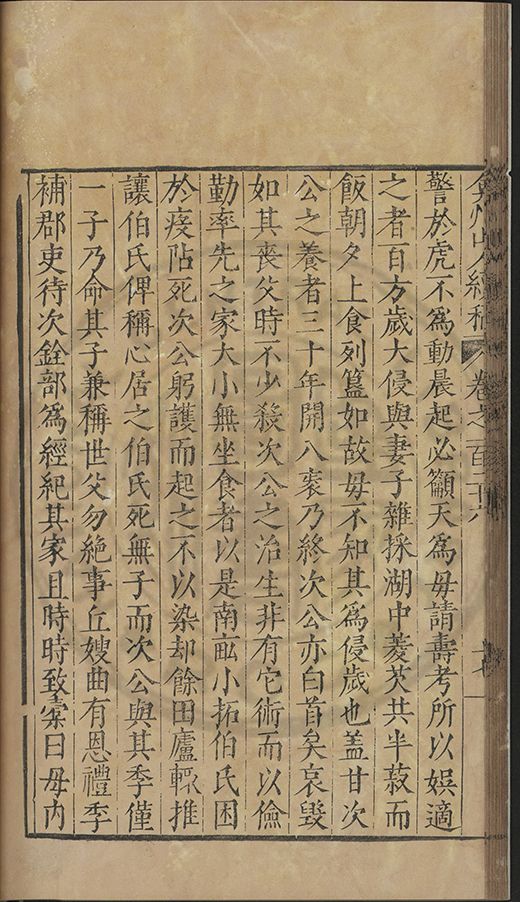 警於虎不為動晨起必籲天為母請壽考所以娛適
之者百方歲大侵與妻子雜採湖中菱芡共半菽而
飯朝夕上食列簋如故母不知其為侵歲也蓋甘次
公之養者三十年開八袠乃終次公亦白首矣哀毀
如其喪父時不少殺次公之治生非有它術而以儉
勤率先之家大小無坐食者以是南畝小拓伯氏困
於疫阽死次公躬護而起之不以染却餘田廬輒推
讓伯氏俾稱心居之伯氏死無子而次公與其季僅
一子乃命其子兼稱世父勿絶事丘嫂曲有恩禮季
補郡吏待次銓部為經紀其家且時時致橐曰毋內